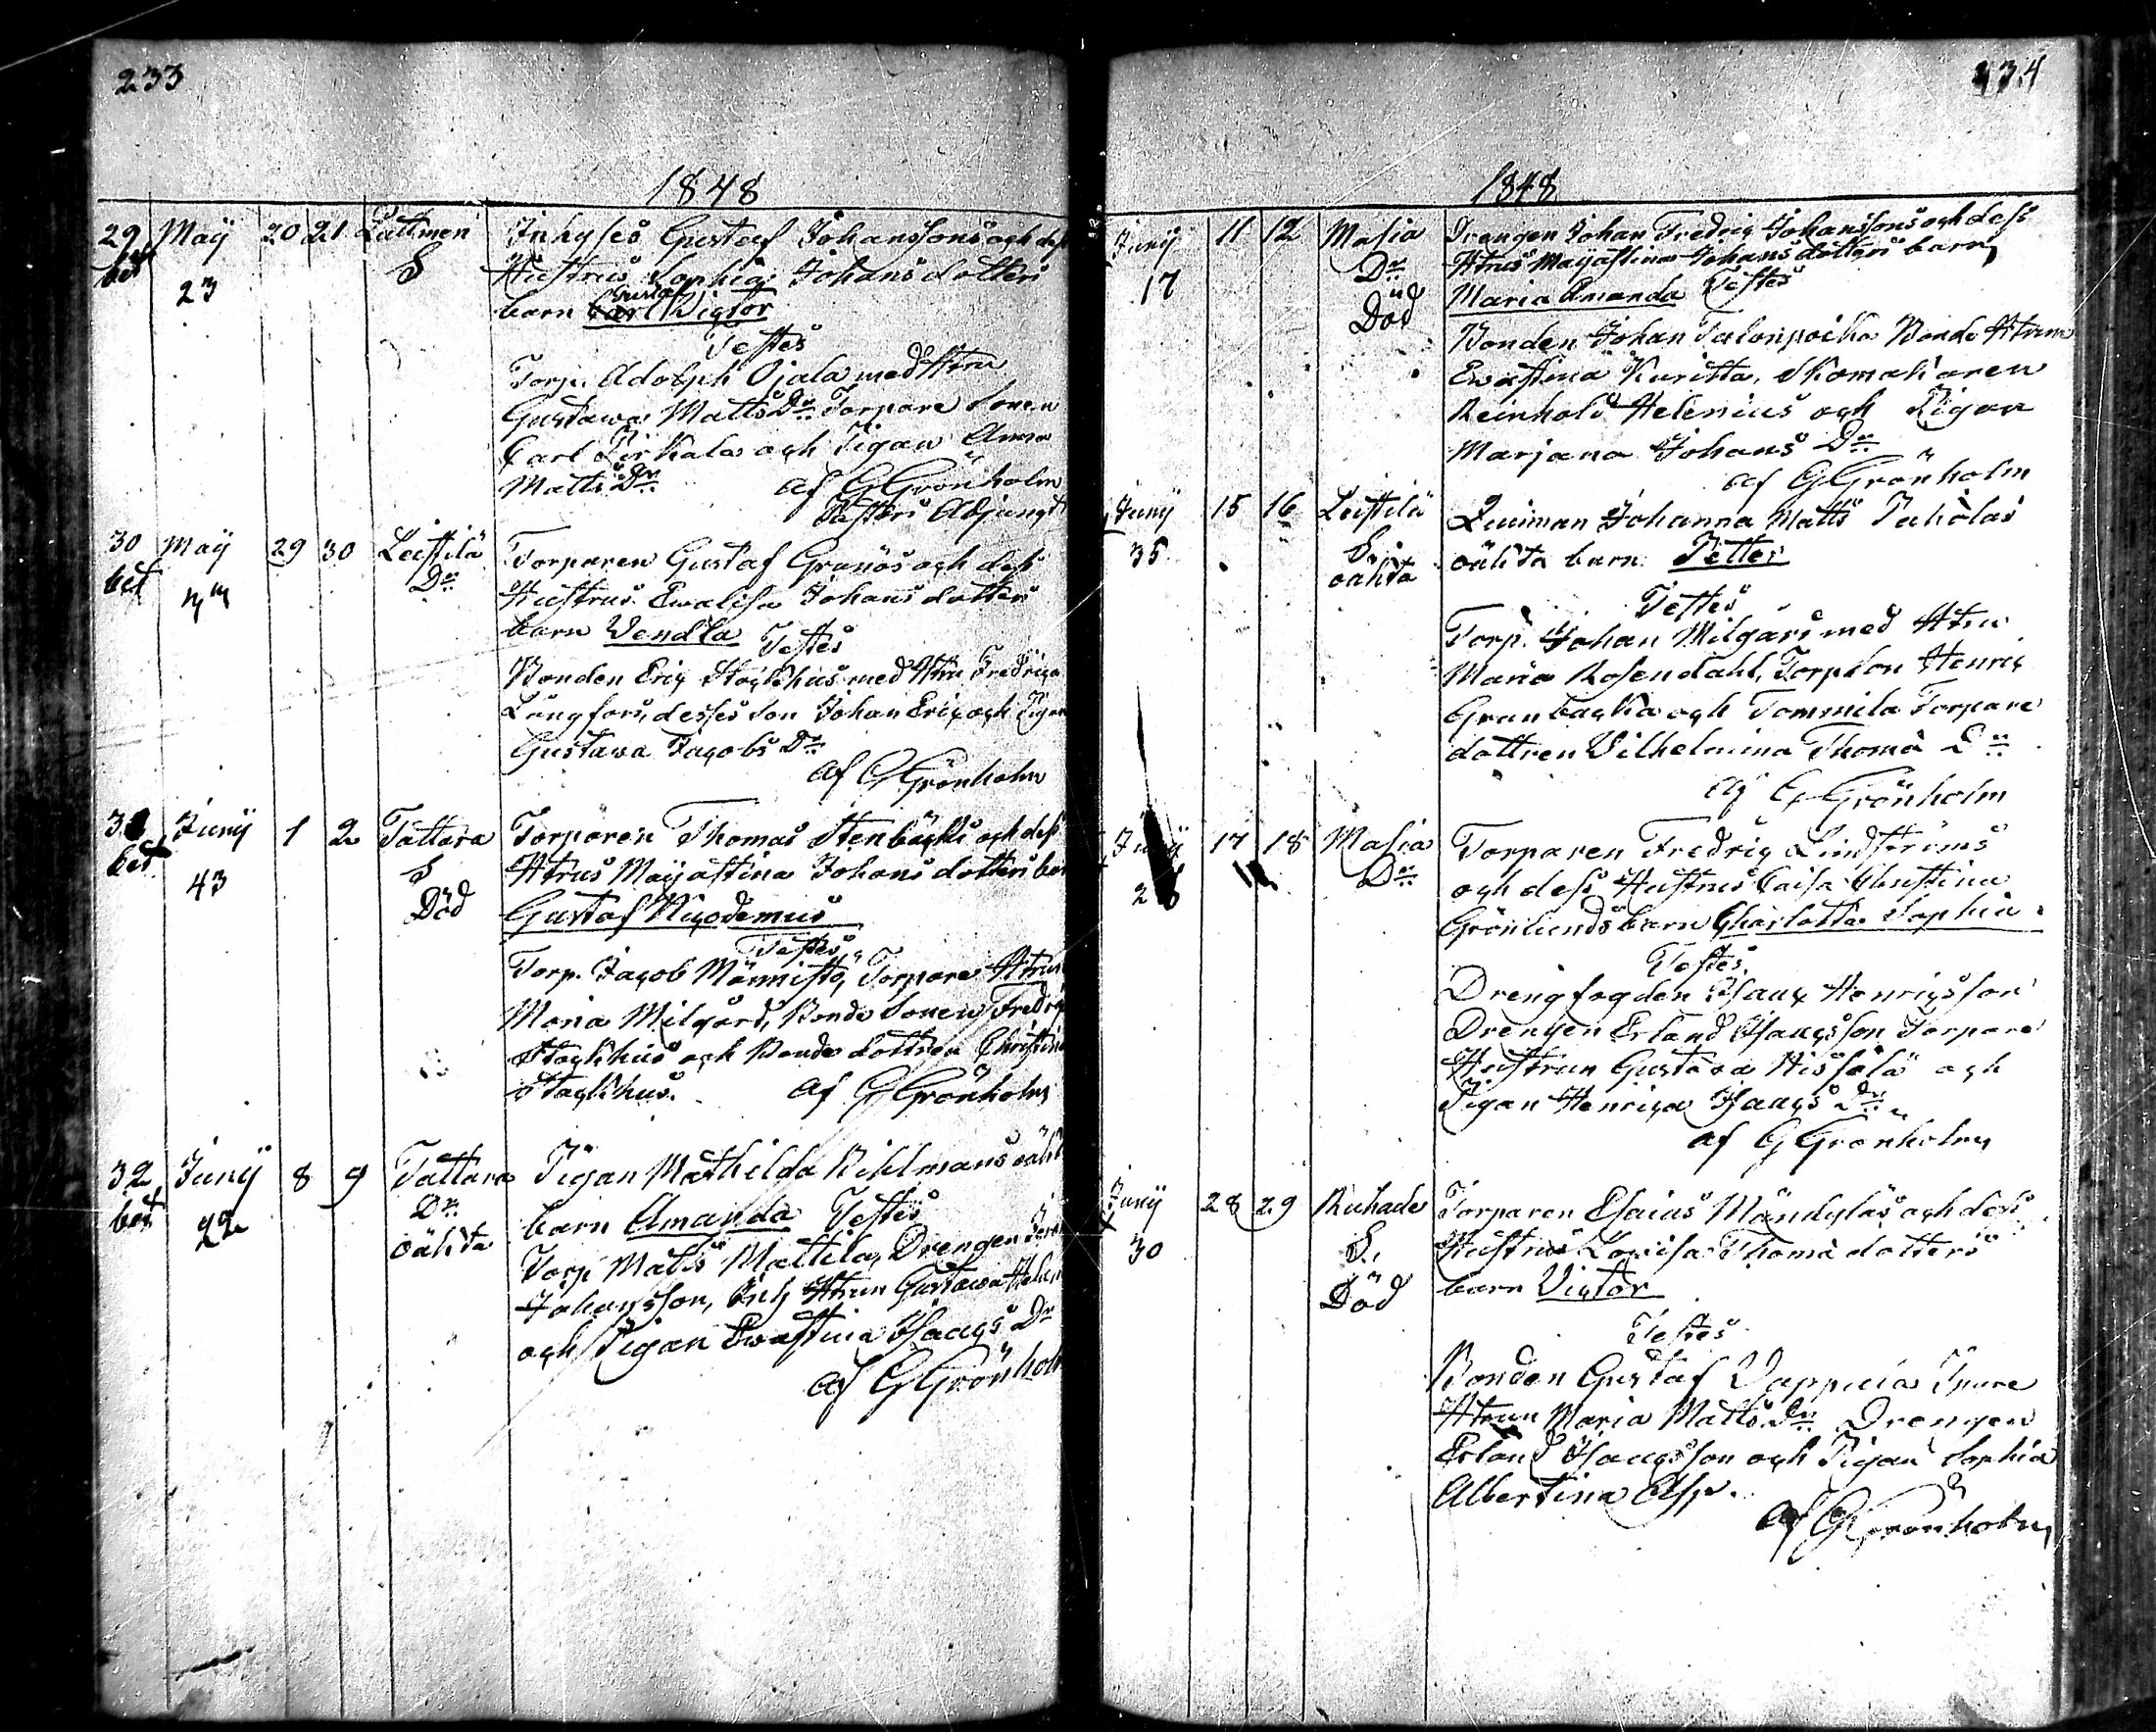 233
1848
29 May 20 21 Lattmen Inhyses Gustaf Johanssons och dess
bet 23 S Hustrus Sophia Johansdotters
Gustaf
barn Carl Victor
Testes
Torp. Adolph Ojala med Hstru
Gustawa Matts Dr Torpare Sonen
Carl Pirkala och Pigan Anna
Matts Dr af G Grönholm
Pastors Adjungt
30 May 29 30 Leistilä Torparen Gustaf Granös och dess
bet Dr Hustrus Ewalisa Johansdotters
barn Vendla Testes
Bonden Eric Stackhus med Hstru Fredrica
Långfors, desses Son Johan Eric och Pigan
Gustava Jacobs Dr
af G Grönholm
31 Juny 1 2 Tattara Torparen Thomas Stenbäcks och dess
bet 43 S Hstrus Mayastina Johansdotters bar
Död Gustaf Nicodemus
Testes
Torp. Jacob Männistö, Torpare Hstrun
Maria Milgård, Bonde Sonen Fredric
Stackhus och Bonde dottren Christina
Stackhus. af G Grönholm
32 Juny 8 9 Tattara Pigan Mathilda Kihlmans oäkt
bet 22 Dr barn Amanda Testes
oäkta Torp. Matts Mattila, Drengen
Johansson, Inh Hstrun Gustawa
och Pigan Ewastina Isaacs Dr
af G Grönholm
234
1848
Juny 11 12 Masia Drengen Johan Fredric Johanssons och dess
17 Dr Hstrus Mayastina Johansdotters barn
Död Maria Amanda Testes
Bonden Johan Talonpoika Bonde Hstrun
Ewastina Kuritta, Skomakaren
Reinhold Helenius och Pigan
Marjana Johans Dr
af G Grönholm
Juny 15 16 Leistilä Qvinnan Johanna Matts Pakolas
35 S oäkta barn Petter
oäkta
Testes
Torp. Johan Milgård med Hstru
Maria Rosendahl, Torp Son Henric
Granbacka och Tommila Torpare
dottren Vilhelmina Thoma Dr
af G Grönholm
Juny 17 18 Masia Torparen Fredric Lindströms
Dr och dess Hustrus Caisa Christina
Grönlunds barn Charlotta Sophia
Testes
Drengfogden Isaac Henricsson
Drengen Erland Isaacsson Torpare
Hustrun Gustava Hissalä och
Pigan Henrica Isaacs Dr
af G Grönholm
Juny 28 29 Ruhade Torparen Esaias Mändyläs och dess
30 S. Hustrus Lovisa Thomadotters
Död barn Victor
Testes
Bonden Gustaf Vappula Inre
Hstrun Maria Matts Dr Drengen
Erland Isaacsson och Pigan Sophia
Albertina Asp.
af G Grönholm